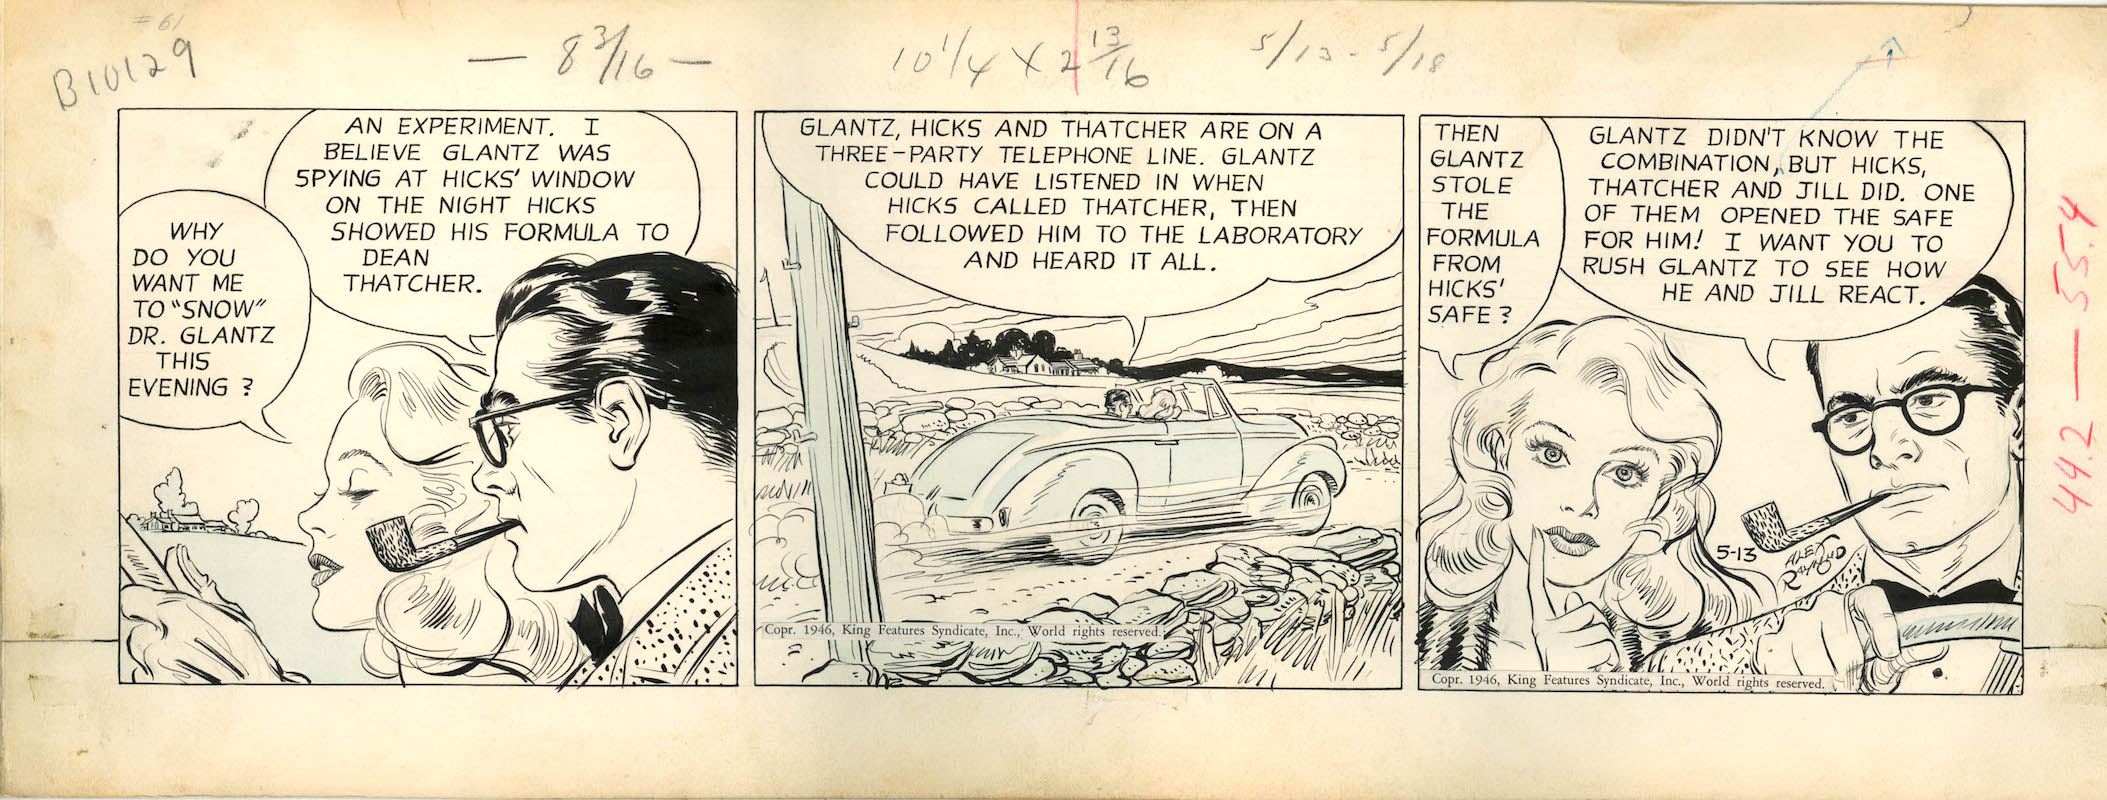 #61
B10129
— 8 3/16 —
10 1/4 X 2 13/16
5/13 - 5/18
WHY
DO YOU
WANT ME
TO "SNOW"
DR. GLANTZ
THIS
EVENING?
AN EXPERIMENT. I
BELIEVE GLANTZ WAS
SPYING AT HICKS' WINDOW
ON THE NIGHT HICKS
SHOWED HIS FORMULA TO
DEAN
THATCHER.
GLANTZ, HICKS AND THATCHER ARE ON A
THREE-PARTY TELEPHONE LINE. GLANTZ
COULD HAVE LISTENED IN WHEN
HICKS CALLED THATCHER, THEN
FOLLOWED HIM TO THE LABORATORY
AND HEARD IT ALL.
Copr. 1946, King Features Syndicate, Inc., World rights reserved.
THEN
GLANTZ
STOLE
THE
FORMULA
FROM
HICKS'
SAFE?
GLANTZ DIDN'T KNOW THE
COMBINATION, BUT HICKS,
THATCHER AND JILL DID. ONE
OF THEM OPENED THE SAFE
FOR HIM! I WANT YOU TO
RUSH GLANTZ TO SEE HOW
HE AND JILL REACT.
5-13
ALEX
RAYMOND
Copr. 1946, King Features Syndicate, Inc., World rights reserved.
44.2 — 55.4